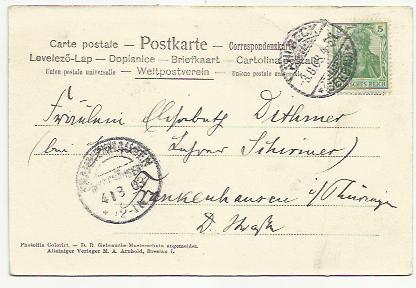 Carte postale — Postkarte — Correspondenzkarte
Levelező-Lap — Dopisnice — Briefkaart — Cartolina postale
Union postale universelle — Weltpostverein — Unione postale universale
5
DEUTSCHES REICH
Fräulein Elisabeth Dethmer
(bei Lehrer Schirmer)
Frankenhausen i/Thüringen
FRANKENHAUSEN
Photolila Colorirt. — D. R. Gebrauchs-Musterschutz angemeldet.
Alleiniger Verleger M. A. Arnhold, Breslau I.